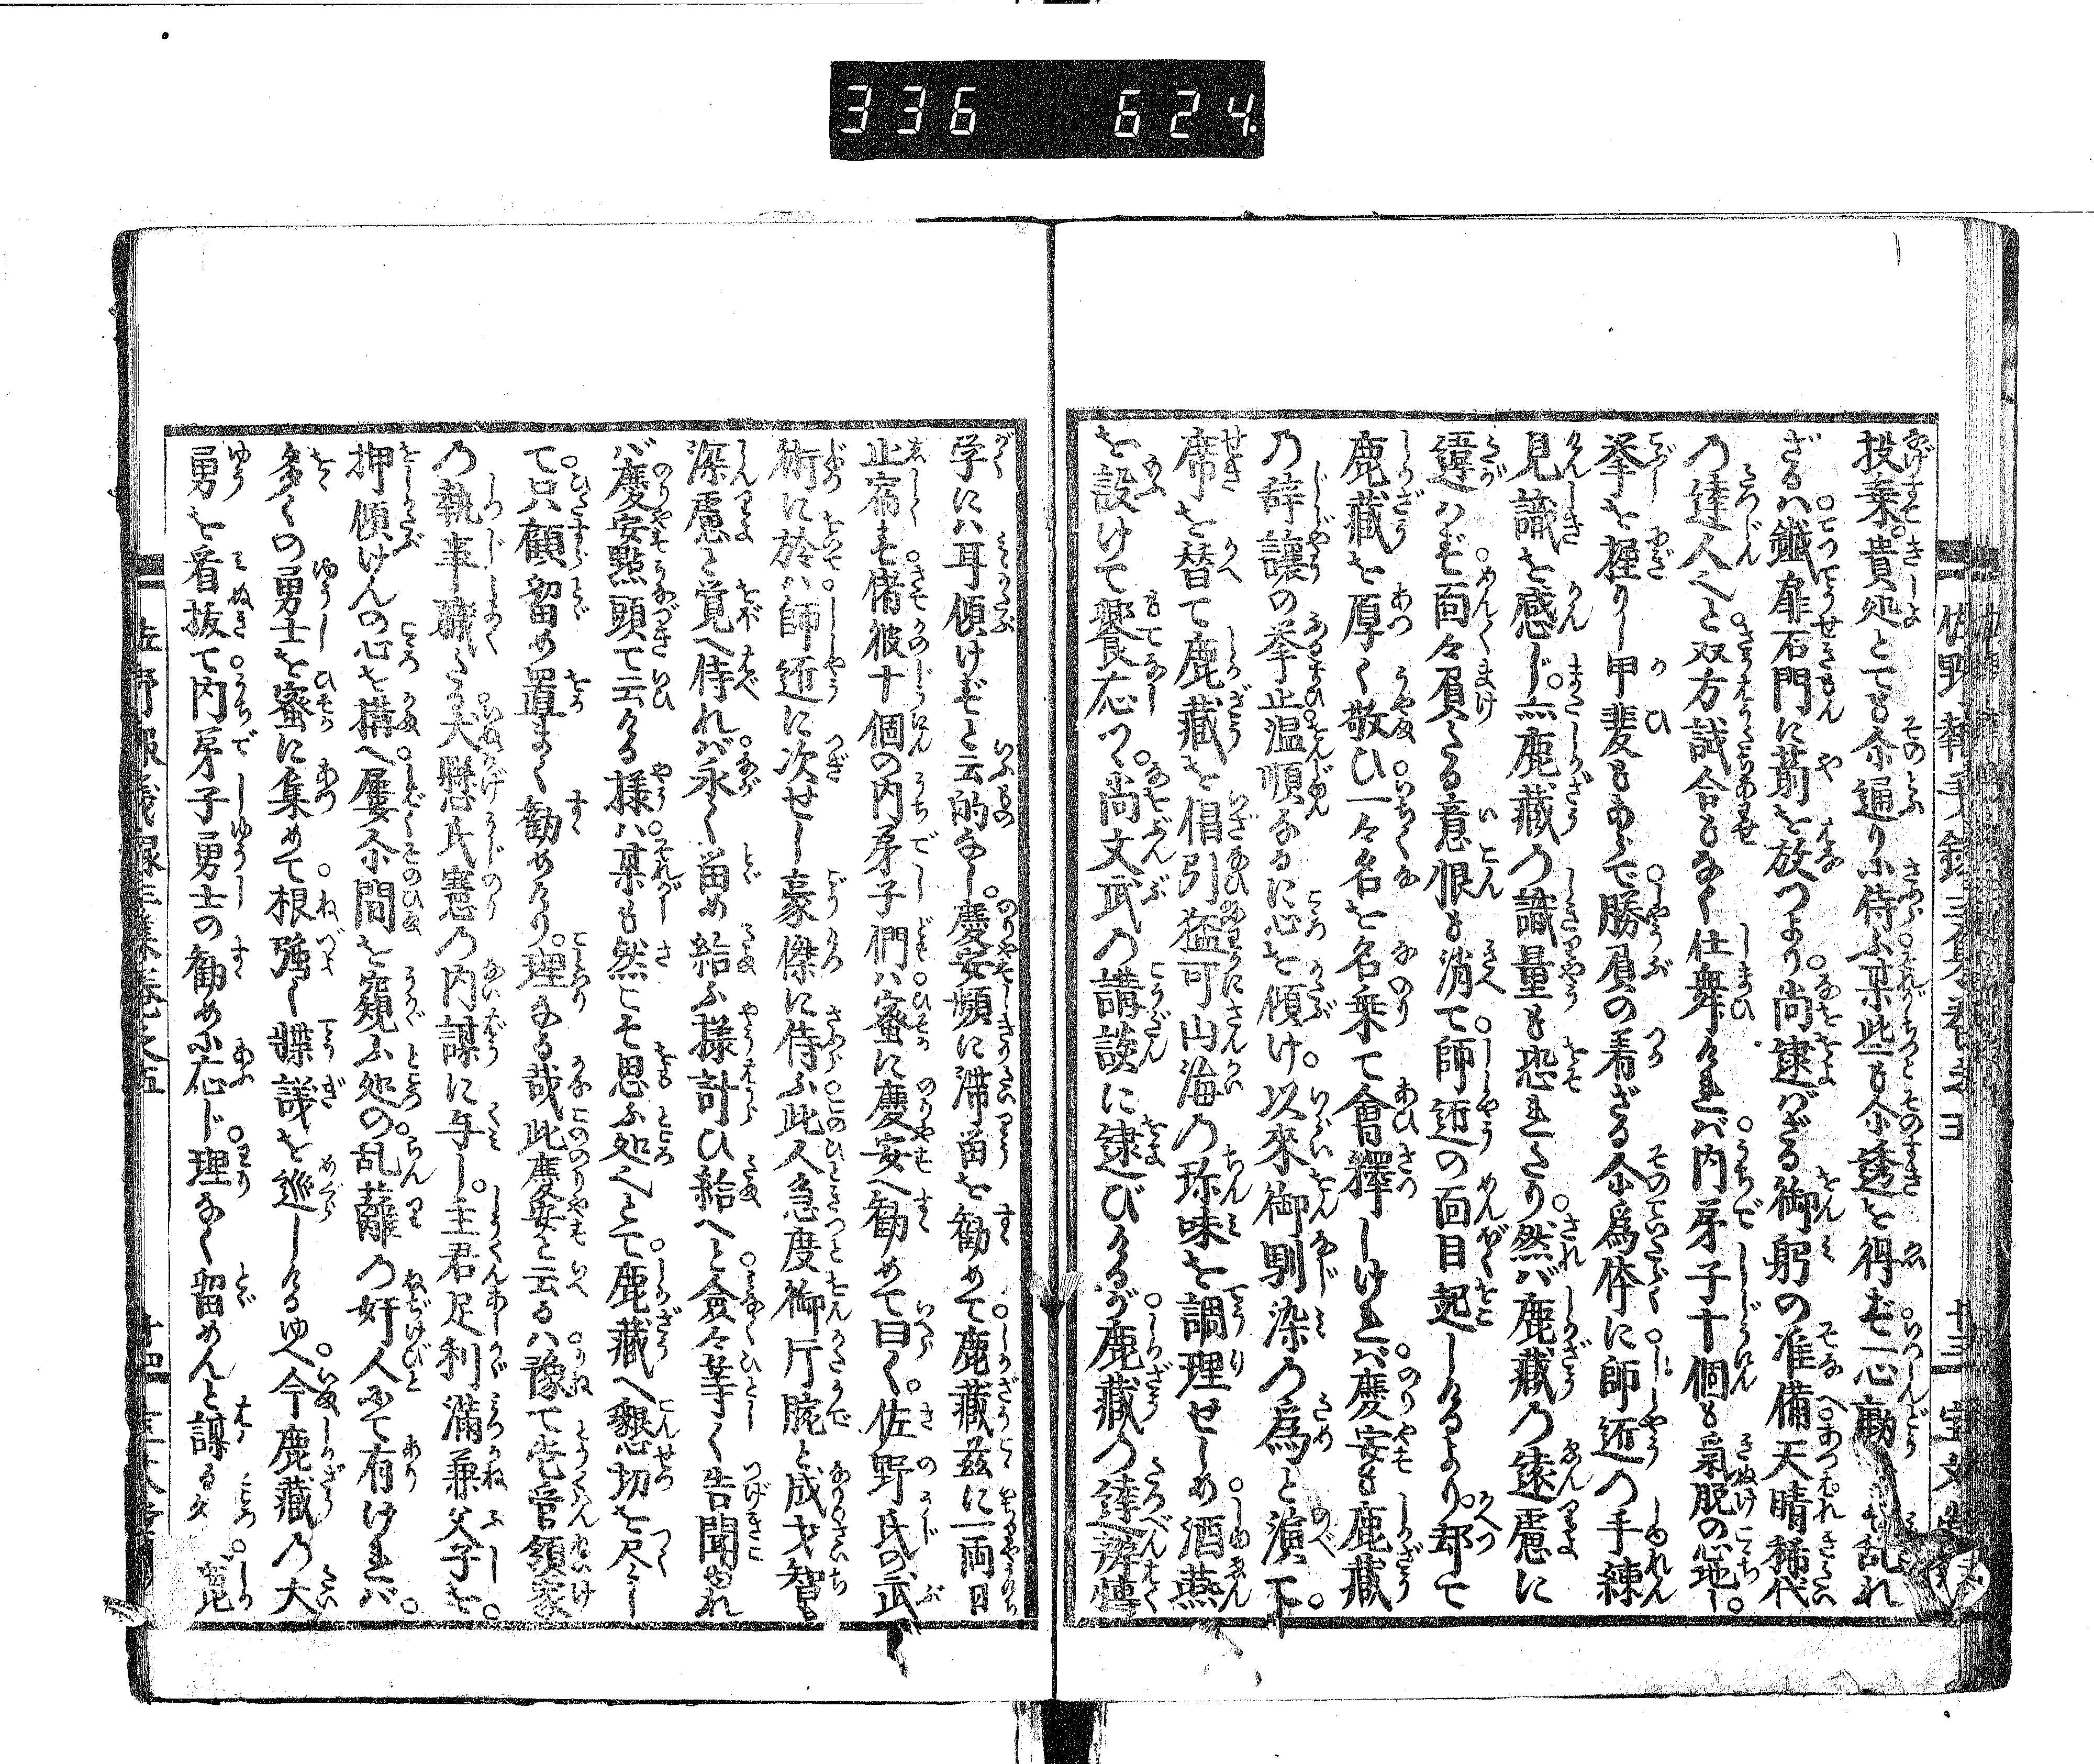 336 624.
投棄。貴処とても尓通り小侍ふ某此も尓透を得ず一心動ず乱れ
ざるハ鐵扉石門に萷を放つより尚逮バざる御躬の准備天晴稀代
の達人へと双方試合もなく仕舞ければ内弟子十個も氣脱の心地し。
拳を握りし甲斐もあらで勝負の着ざる尓為体に師近の手練
見識を感じ。亦鹿藏の識量も恐れたり然バ鹿藏の遠慮に
違ハず面々負たる意恨も消て師近の面目起しけるより。却て
鹿藏を厚く敬ひ一々名を名乗て會釋しければ慶安も鹿藏
の辞讓の挙止温順なるに心を傾け。以來御馴染の為と演下。
席を替て鹿藏を倡引猛可山海の珎味を調理せしめ酒燕
を設けて饗応つ。尚文武の講談に逮びけるが鹿藏の達辨博
学にハ耳傾けずと云的なし。慶安頻に滞畄を勧めて。鹿藏玆に一両日
止宿す偖彼十個の内弟子們ハ蜜に慶安へ勧めて曰く。佐野氏の武
術に於ハ師近に次せし豪傑に侍ふ此人急度御片腕と成才智も
深慮と覚へ侍れバ永く畄め給ふ様計ひ給へと僉々等く告聞ゆれ
バ慶安點頭て云ける様ハ某も然こそ思ふ処へとて鹿藏へ懇切を尽し
て。只顧留め置まく勧めけり。理なる哉此慶安と云るハ豫て壱管領家
の執事職たる犬懸氏憲の内謀に与し。主君足利満兼父子を。
押傾けんの心を搆へ屡尓間を窺ふ処の乱離の奸人にて有ければ。
多くの勇士を蜜に集めて根強く牒議を巡しけるゆへ。今鹿藏の大
勇を看抜て内弟子勇士の勧め小応じ理なく留めんと謀る処。鹿